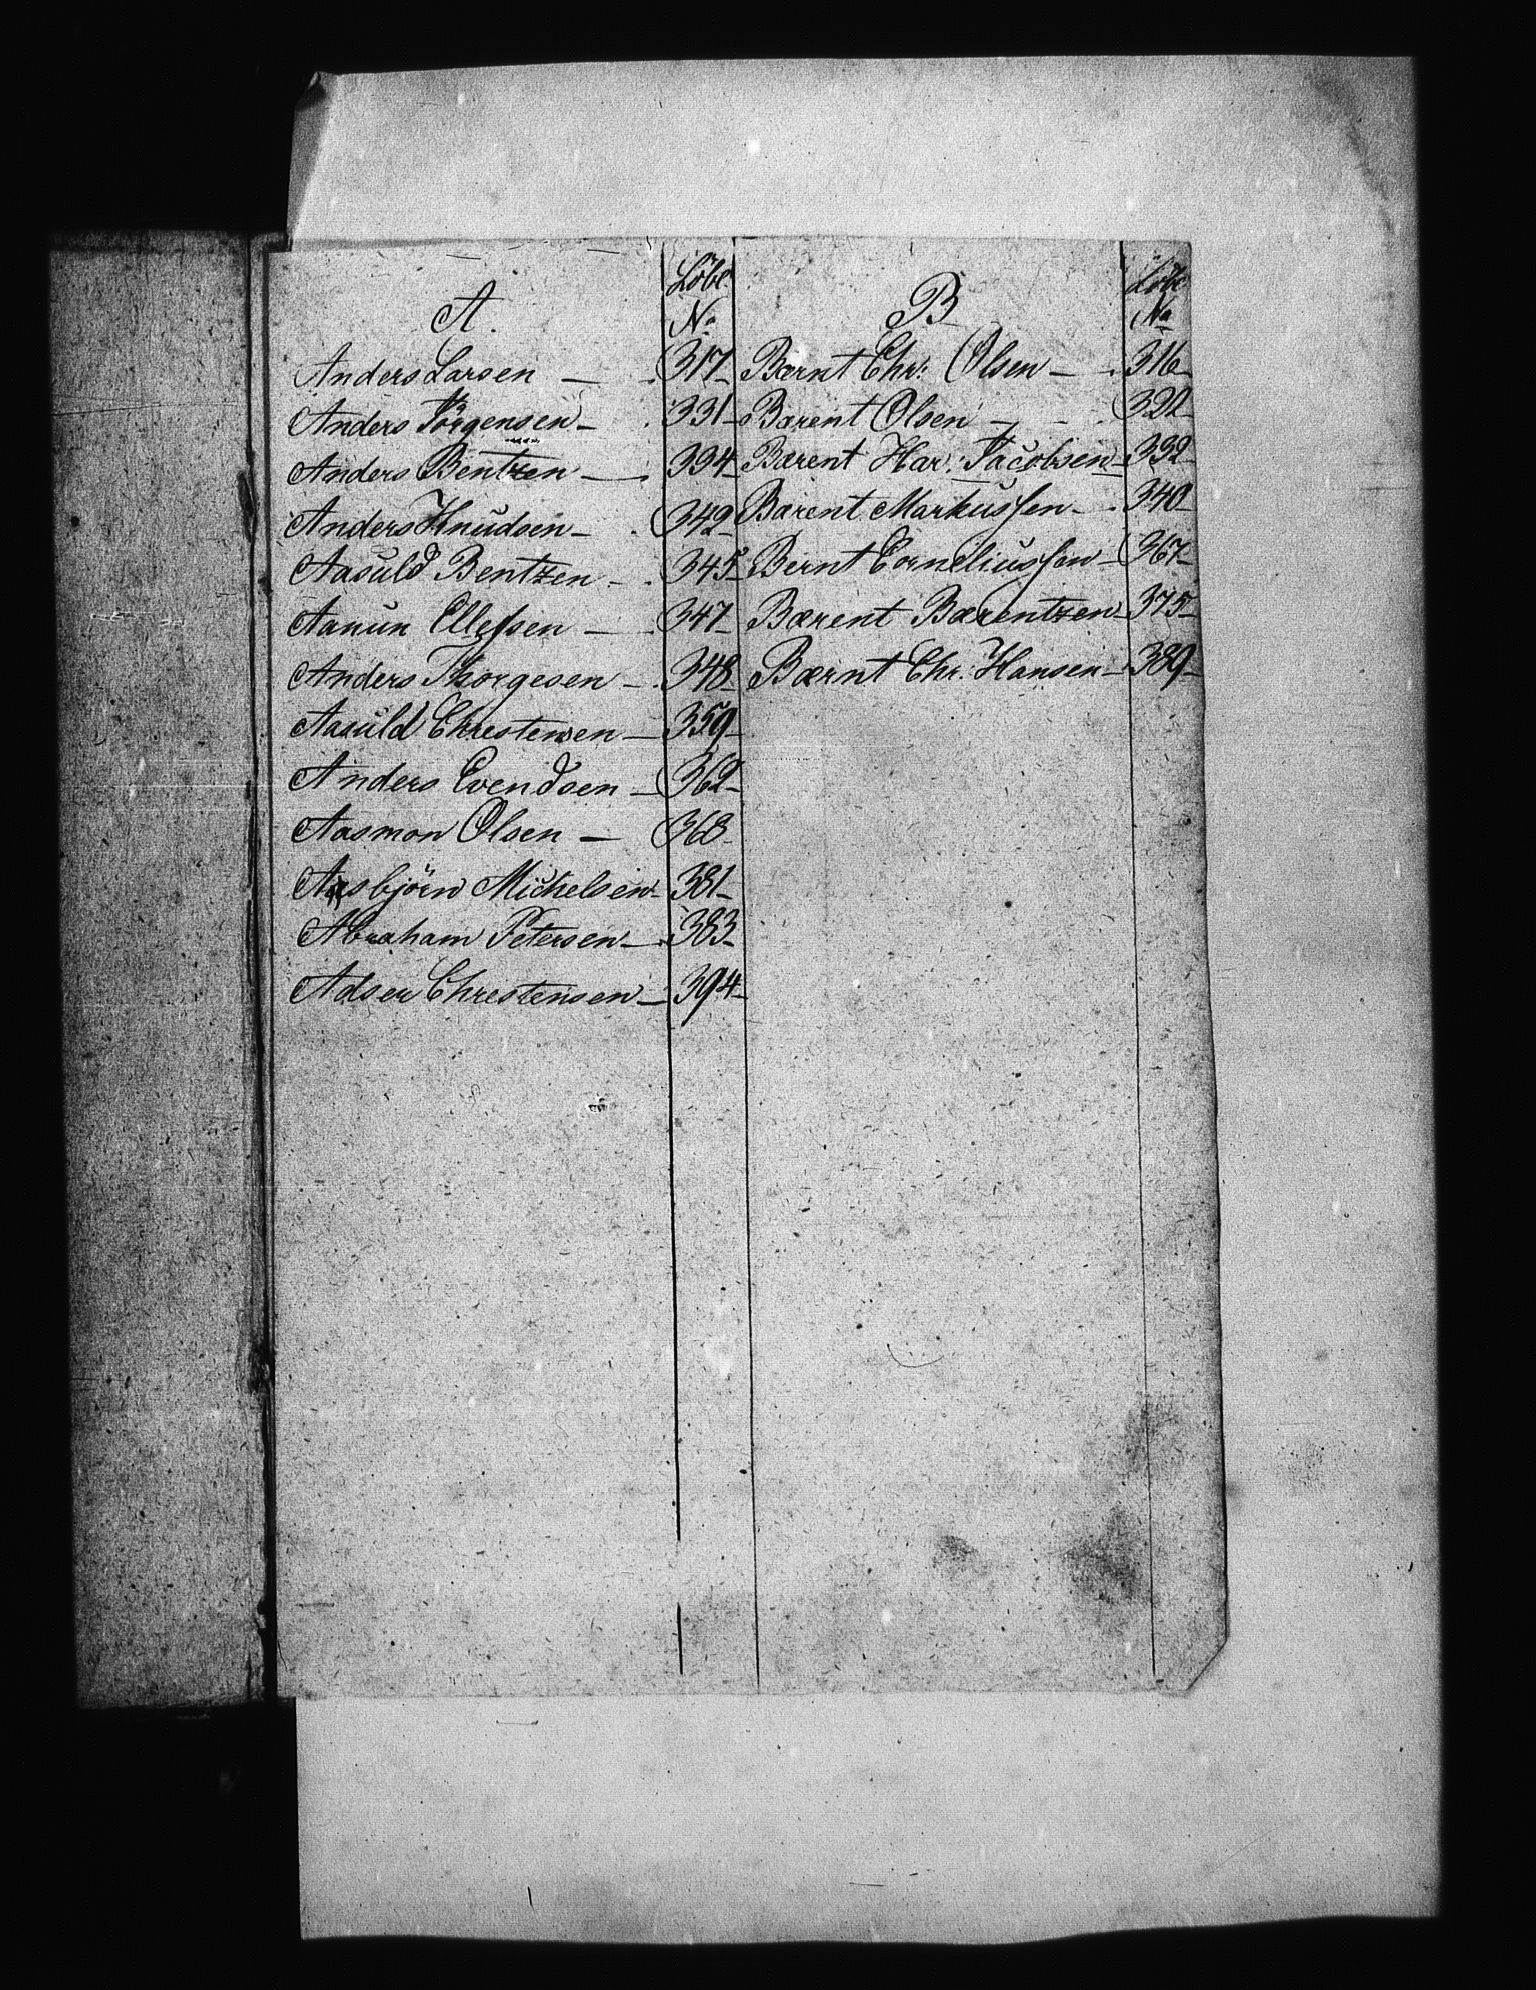 A.
Löbe
No
Anders Larsen — 317
Anders Jörgensen — 331
Anders Bentzen — 334
Anders Knudsen — 342
Aasuld Bentzen — 345
Aanun Ellefsen — 347
Anders Thorgesen — 348
Aasuld Chrestensen — 359
Anders Evendsen — 362
Aasmon Olsen — 368
Aasbjörn Michelsen — 381
Abraham Petersen — 383
Adser Chrestensen — 394
B
Löbe
No
Bærnt Chr: Olsen — 316
Barent Olsen — 322
Bærent Har: Jacobsen — 332
Barent Markussen — 340
Bernt Corneliussen — 367
Bærent Bærentzen — 375
Bærnt Chr. Hansen — 389